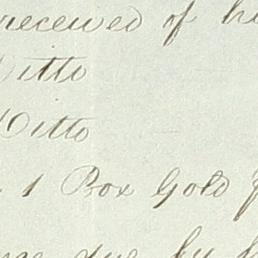 received of
Ditto
Ditto
1 Box Gold
due by